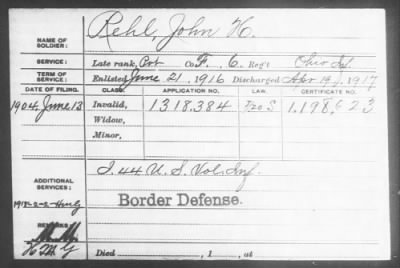 NAME OF SOLDIER: Rehl, John H.
SERVICE: Late rank, Pvt Co. F, 6 Reg't Ohio Inf
TERM OF SERVICE: Enlisted June 21, 1916 Discharged Apr 19, 1917
DATE OF FILING. CLASS. APPLICATION NO. LAW. CERTIFICATE NO.
1904, June 13 Invalid, 1318,384 1,198,623
Widow,
Minor,
ADDITIONAL SERVICES: I. 44 U.S. Vol. Inf.
Border Defense.
REMARKS
Died , 1 , at